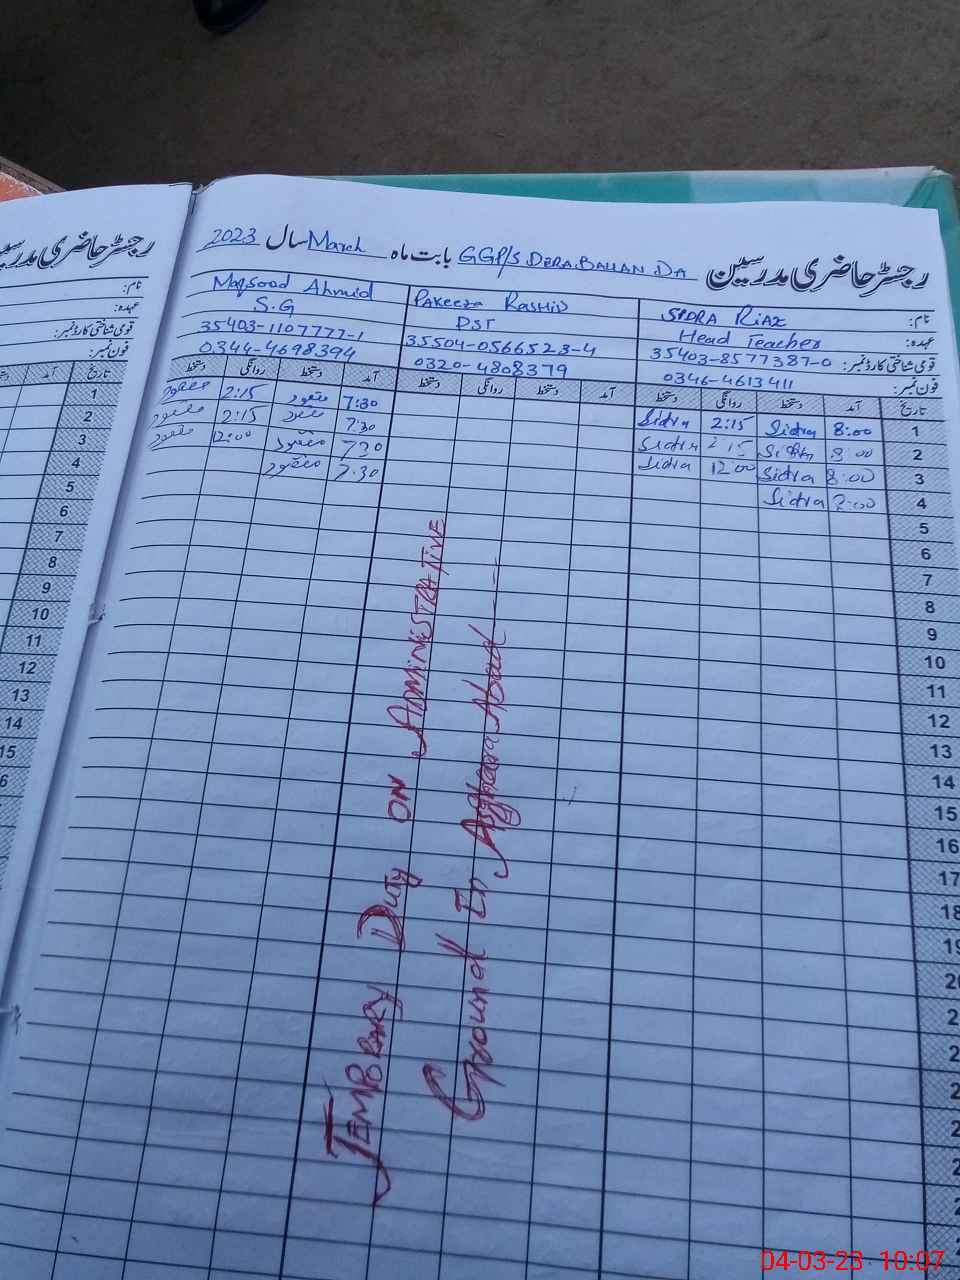 رجسٹر حاضری مدرسین GGP/S DERA BALLAN DA بابت ماہ March سال 2023
نام: SIDRA RIAZ
PAKEEZA RASHID
Maqsood Ahmid
عہدہ: Head Teacher
PST
S.G
قومی شناختی کارڈ نمبر: 35403-8577387-0
35504-0566523-4
35403-1107777-1
فون نمبر: 0346-4613411
0320-4808379
0344-4698394
تاریخ آمد دستخط روانگی دستخط آمد دستخط روانگی دستخط آمد دستخط روانگی دستخط
1 8:00 Sidra 2:15 Sidra 7:30 مقصود 2:15 مقصود
2 8:00 Sidra 2:15 Sidra 7:30 مقصود 2:15 مقصود
3 8:00 Sidra 12:00 Sidra 7:30 مقصود 12:00 مقصود
4 8:00 Sidra 7:30 مقصود
5
6
7
8
9
10
11
12
13
14
15
16
17
18
19
TEMPORARY DUTY ON ADMINISTRATIVE
Ground In Asghara Abad
رجسٹر حاضری مدرسین
نام:
عہدہ:
قومی شناختی کارڈ نمبر:
فون نمبر:
تاریخ آمد
1
2
3
4
5
6
7
8
9
10
11
12
13
14
15
04-03-23 10:07